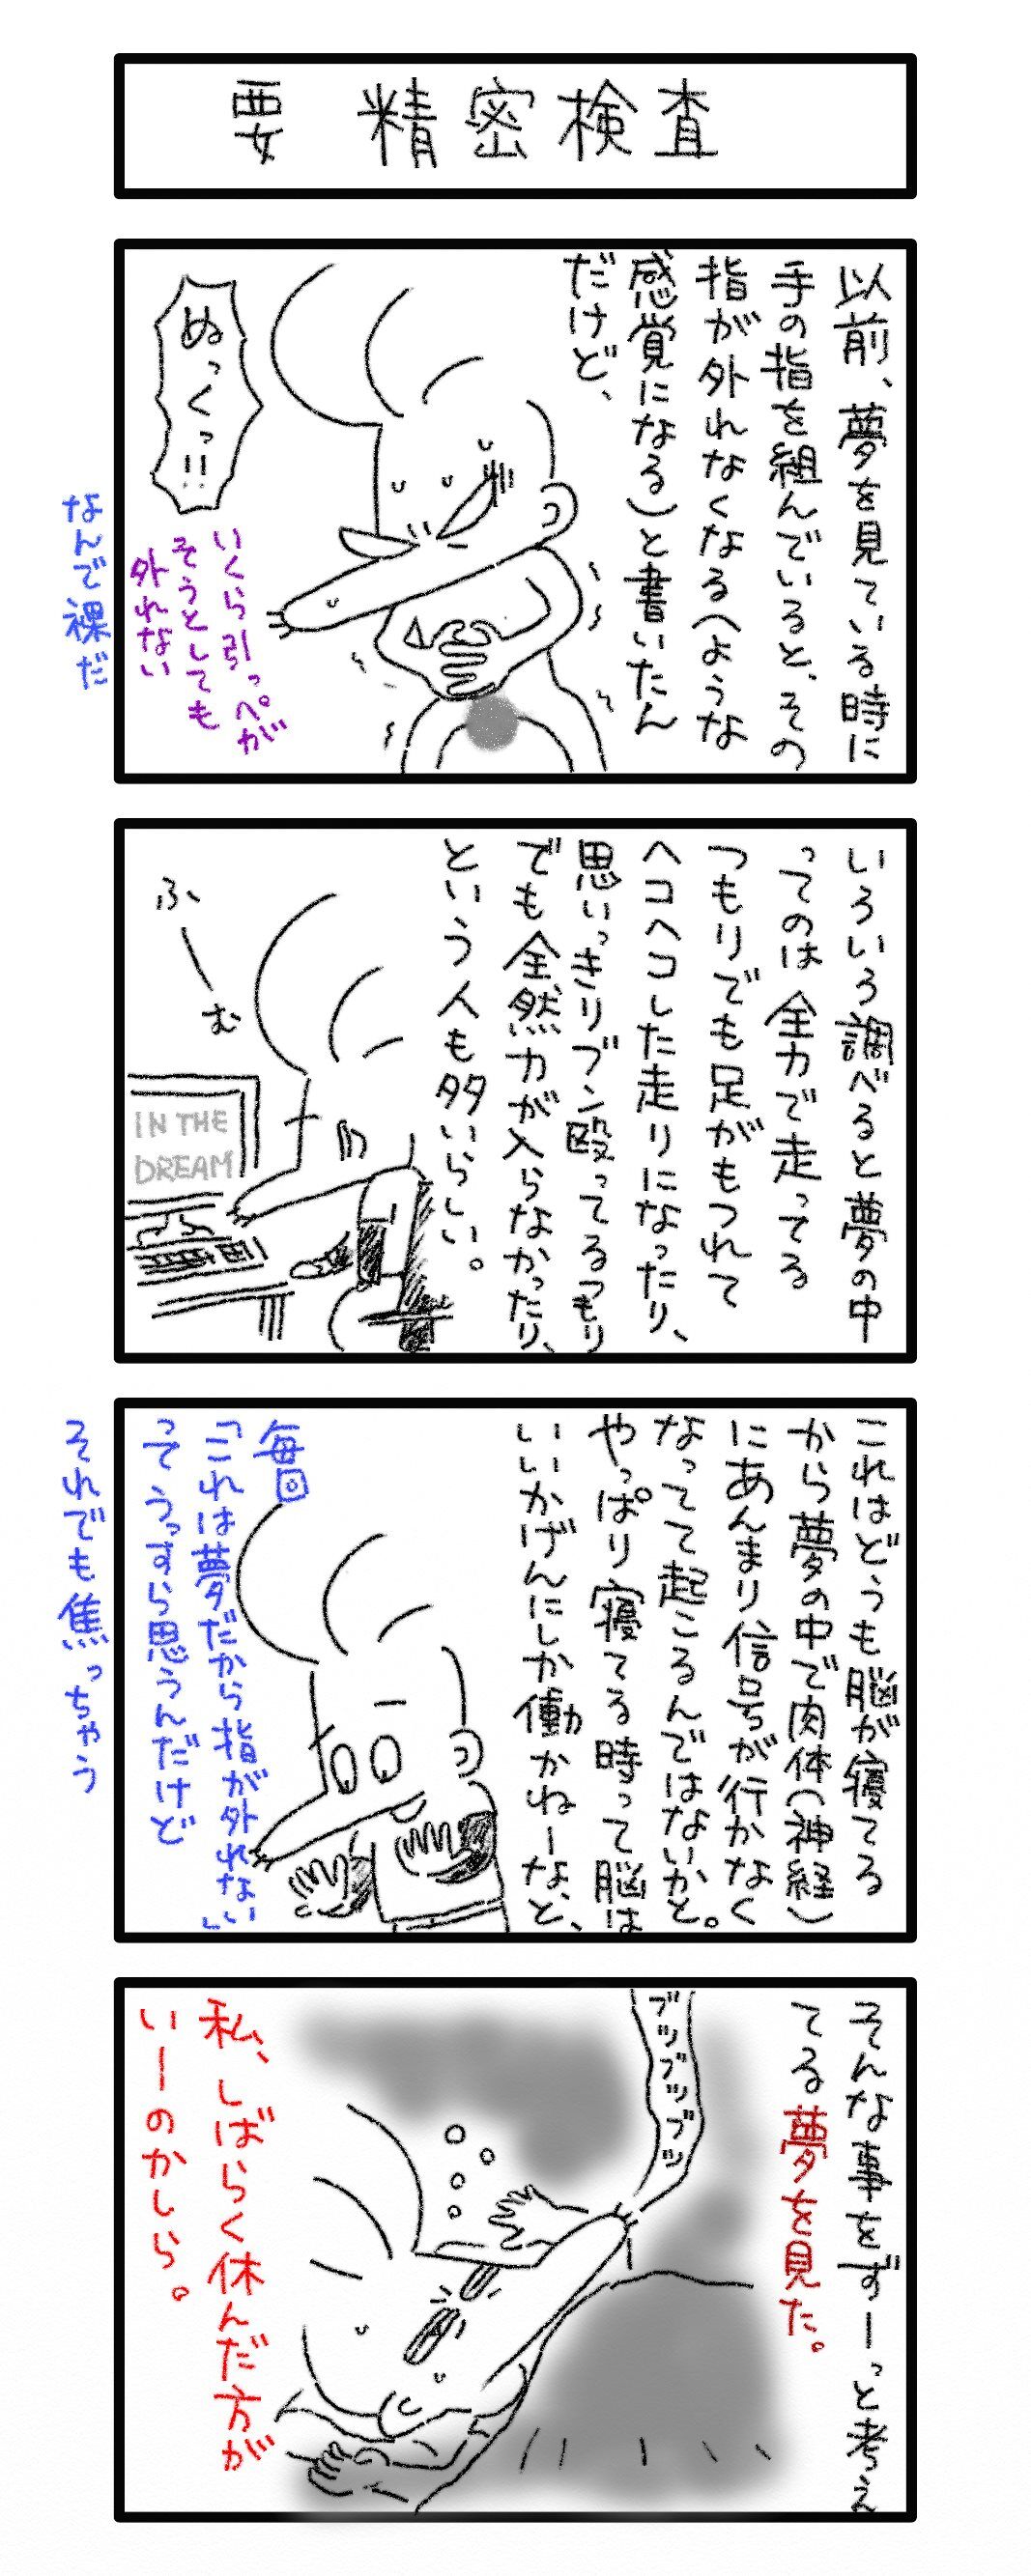 要 精密検査
以前、夢を見ている時に
手の指を組んでいると、その
指が外れなくなる(ような
感覚になる)と書いたん
だけど、
ぬっくっ!!
いくら引っぺが
そうとしても
外れない
なんで裸だ
いろいろ調べると夢の中
ってのは全力で走ってる
つもりでも足がもつれて
ヘコヘコした走りになったり、
思いっきりブン殴ってるつもり
でも全然力が入らなかったり、
という人も多いらしい。
ふーむ
IN THE
DREAM
これはどうも脳が寝てる
から夢の中で肉体(神経)
にあんまり信号が行かなく
なってて起こるんではないかと。
やっぱり寝てる時って脳は
いいかげんにしか働かねーな、と、
毎回
「これは夢だから指が外れない」
ってうっすら思うんだけど
それでも焦っちゃう
そんな事をずーっと考え
てる夢を見た。
ブツブツブツ
私、しばらく休んだ方が
いーのかしら。